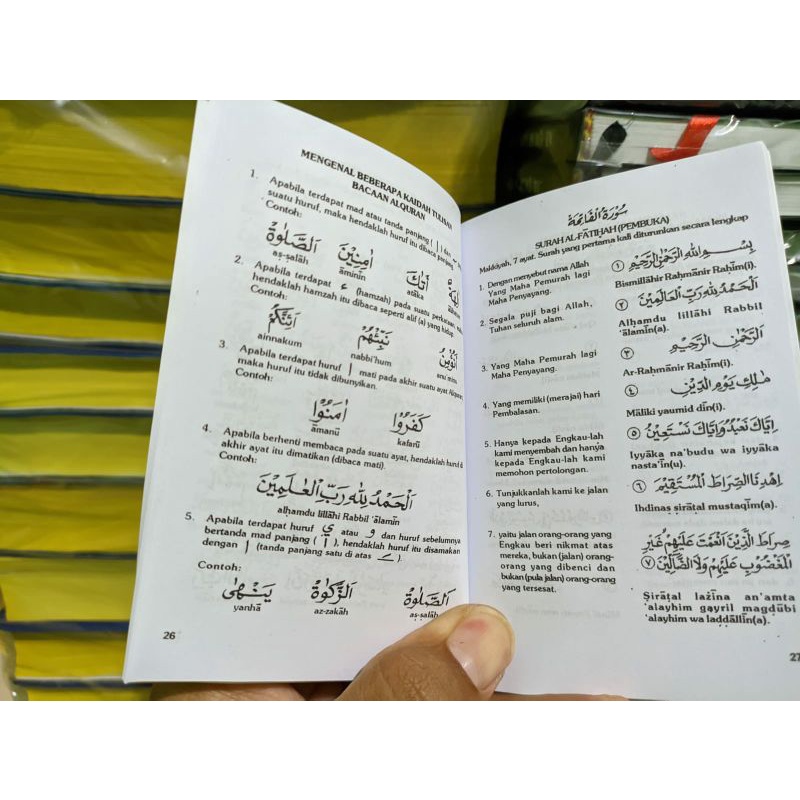 MENGENAL BEBERAPA KAIDAH TULISAN
BACAAN ALQURAN
1. Apabila terdapat mad atau tanda panjang
suatu huruf, maka hendaklah huruf itu dibaca
Contoh:
اَلصَّلٰوةُ اٰمِنِيْنَ اَتٰكَ
aṣ-ṣalāh āminīn atāka
2. Apabila terdapat ء (hamzah) pada suatu
hendaklah hamzah itu dibaca seperti alif (a) yang hidup.
Contoh:
ainnakum nabbi'hum
3. Apabila terdapat huruf ا mati pada akhir suatu ayat
maka huruf itu tidak dibunyikan.
Contoh:
اٰمَنُوْا كَفَرُوْا
āmanū kafarū
4. Apabila berhenti membaca pada suatu ayat, hendaklah huruf
akhir ayat itu dimatikan (dibaca mati).
Contoh:
اَلْحَمْدُ لِلّٰهِ رَبِّ الْعٰلَمِيْنَ
alḥamdu lillāhi Rabbil 'ālamīn
5. Apabila terdapat huruf ي atau و dan huruf sebelumnya
bertanda mad panjang ( ا ), hendaklah huruf itu disamakan
dengan ا (tanda panjang satu di atas ).
Contoh:
يَنْهٰى اَلزَّكٰوةُ اَلصَّلٰوةُ
yanhā az-zakāh aṣ-ṣalāh
26
سُوْرَةُ الْفَاتِحَةِ
SURAH AL-FĀTIḤAH (PEMBUKA)
Makkiyah, 7 ayat. Surah yang pertama kali diturunkan secara lengkap
1. Dengan menyebut nama Allah
Yang Maha Pemurah lagi
Maha Penyayang.
بِسْمِ اللّٰهِ الرَّحْمٰنِ الرَّحِيْمِ ١
Bismillāhir Raḥmānir Raḥīm(i).
2. Segala puji bagi Allah,
Tuhan seluruh alam.
اَلْحَمْدُ لِلّٰهِ رَبِّ الْعَالَمِيْنَ ٢
Alḥamdu lillāhi Rabbil
'ālamīn(a).
3. Yang Maha Pemurah lagi
Maha Penyayang.
اَلرَّحْمٰنِ الرَّحِيْمِ ٣
Ar-Raḥmānir Raḥīm(i).
4. Yang memiliki (merajai) hari
Pembalasan.
مٰلِكِ يَوْمِ الدِّيْنِ ٤
Māliki yaumid dīn(i).
5. Hanya kepada Engkau-lah
kami menyembah dan hanya
kepada Engkau-lah kami
memohon pertolongan.
اِيَّاكَ نَعْبُدُ وَاِيَّاكَ نَسْتَعِيْنُ ٥
Iyyāka na'budu wa iyyāka
nasta'īn(u).
6. Tunjukkanlah kami ke jalan
yang lurus,
اِهْدِنَا الصِّرَاطَ الْمُسْتَقِيْمَ ٦
Ihdinaṣ ṣirāṭal mustaqīm(a).
7. yaitu jalan orang-orang yang
Engkau beri nikmat atas
mereka, bukan (jalan) orang-
orang yang dibenci dan
bukan (pula jalan) orang-orang
yang tersesat.
صِرَاطَ الَّذِيْنَ اَنْعَمْتَ عَلَيْهِمْ غَيْرِ
الْمَغْضُوْبِ عَلَيْهِمْ وَلَا الضَّآلِّيْنَ ٧
Ṣirāṭal lażīna an'amta
'alayhim gayril magḍūbi
'alayhim wa laḍḍāllīn(a).
27